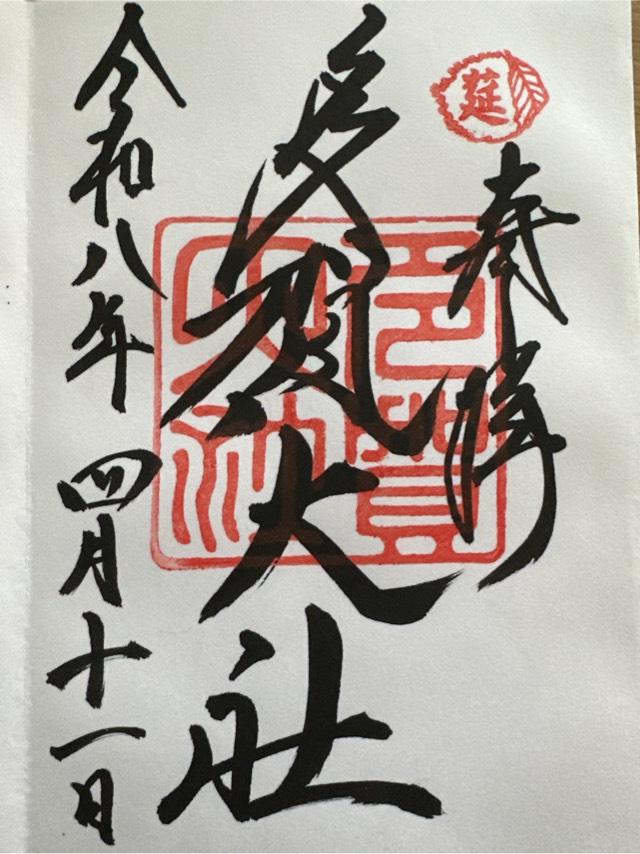 莚
奉拝
多賀大社
多賀大社
令和八年四月十一日